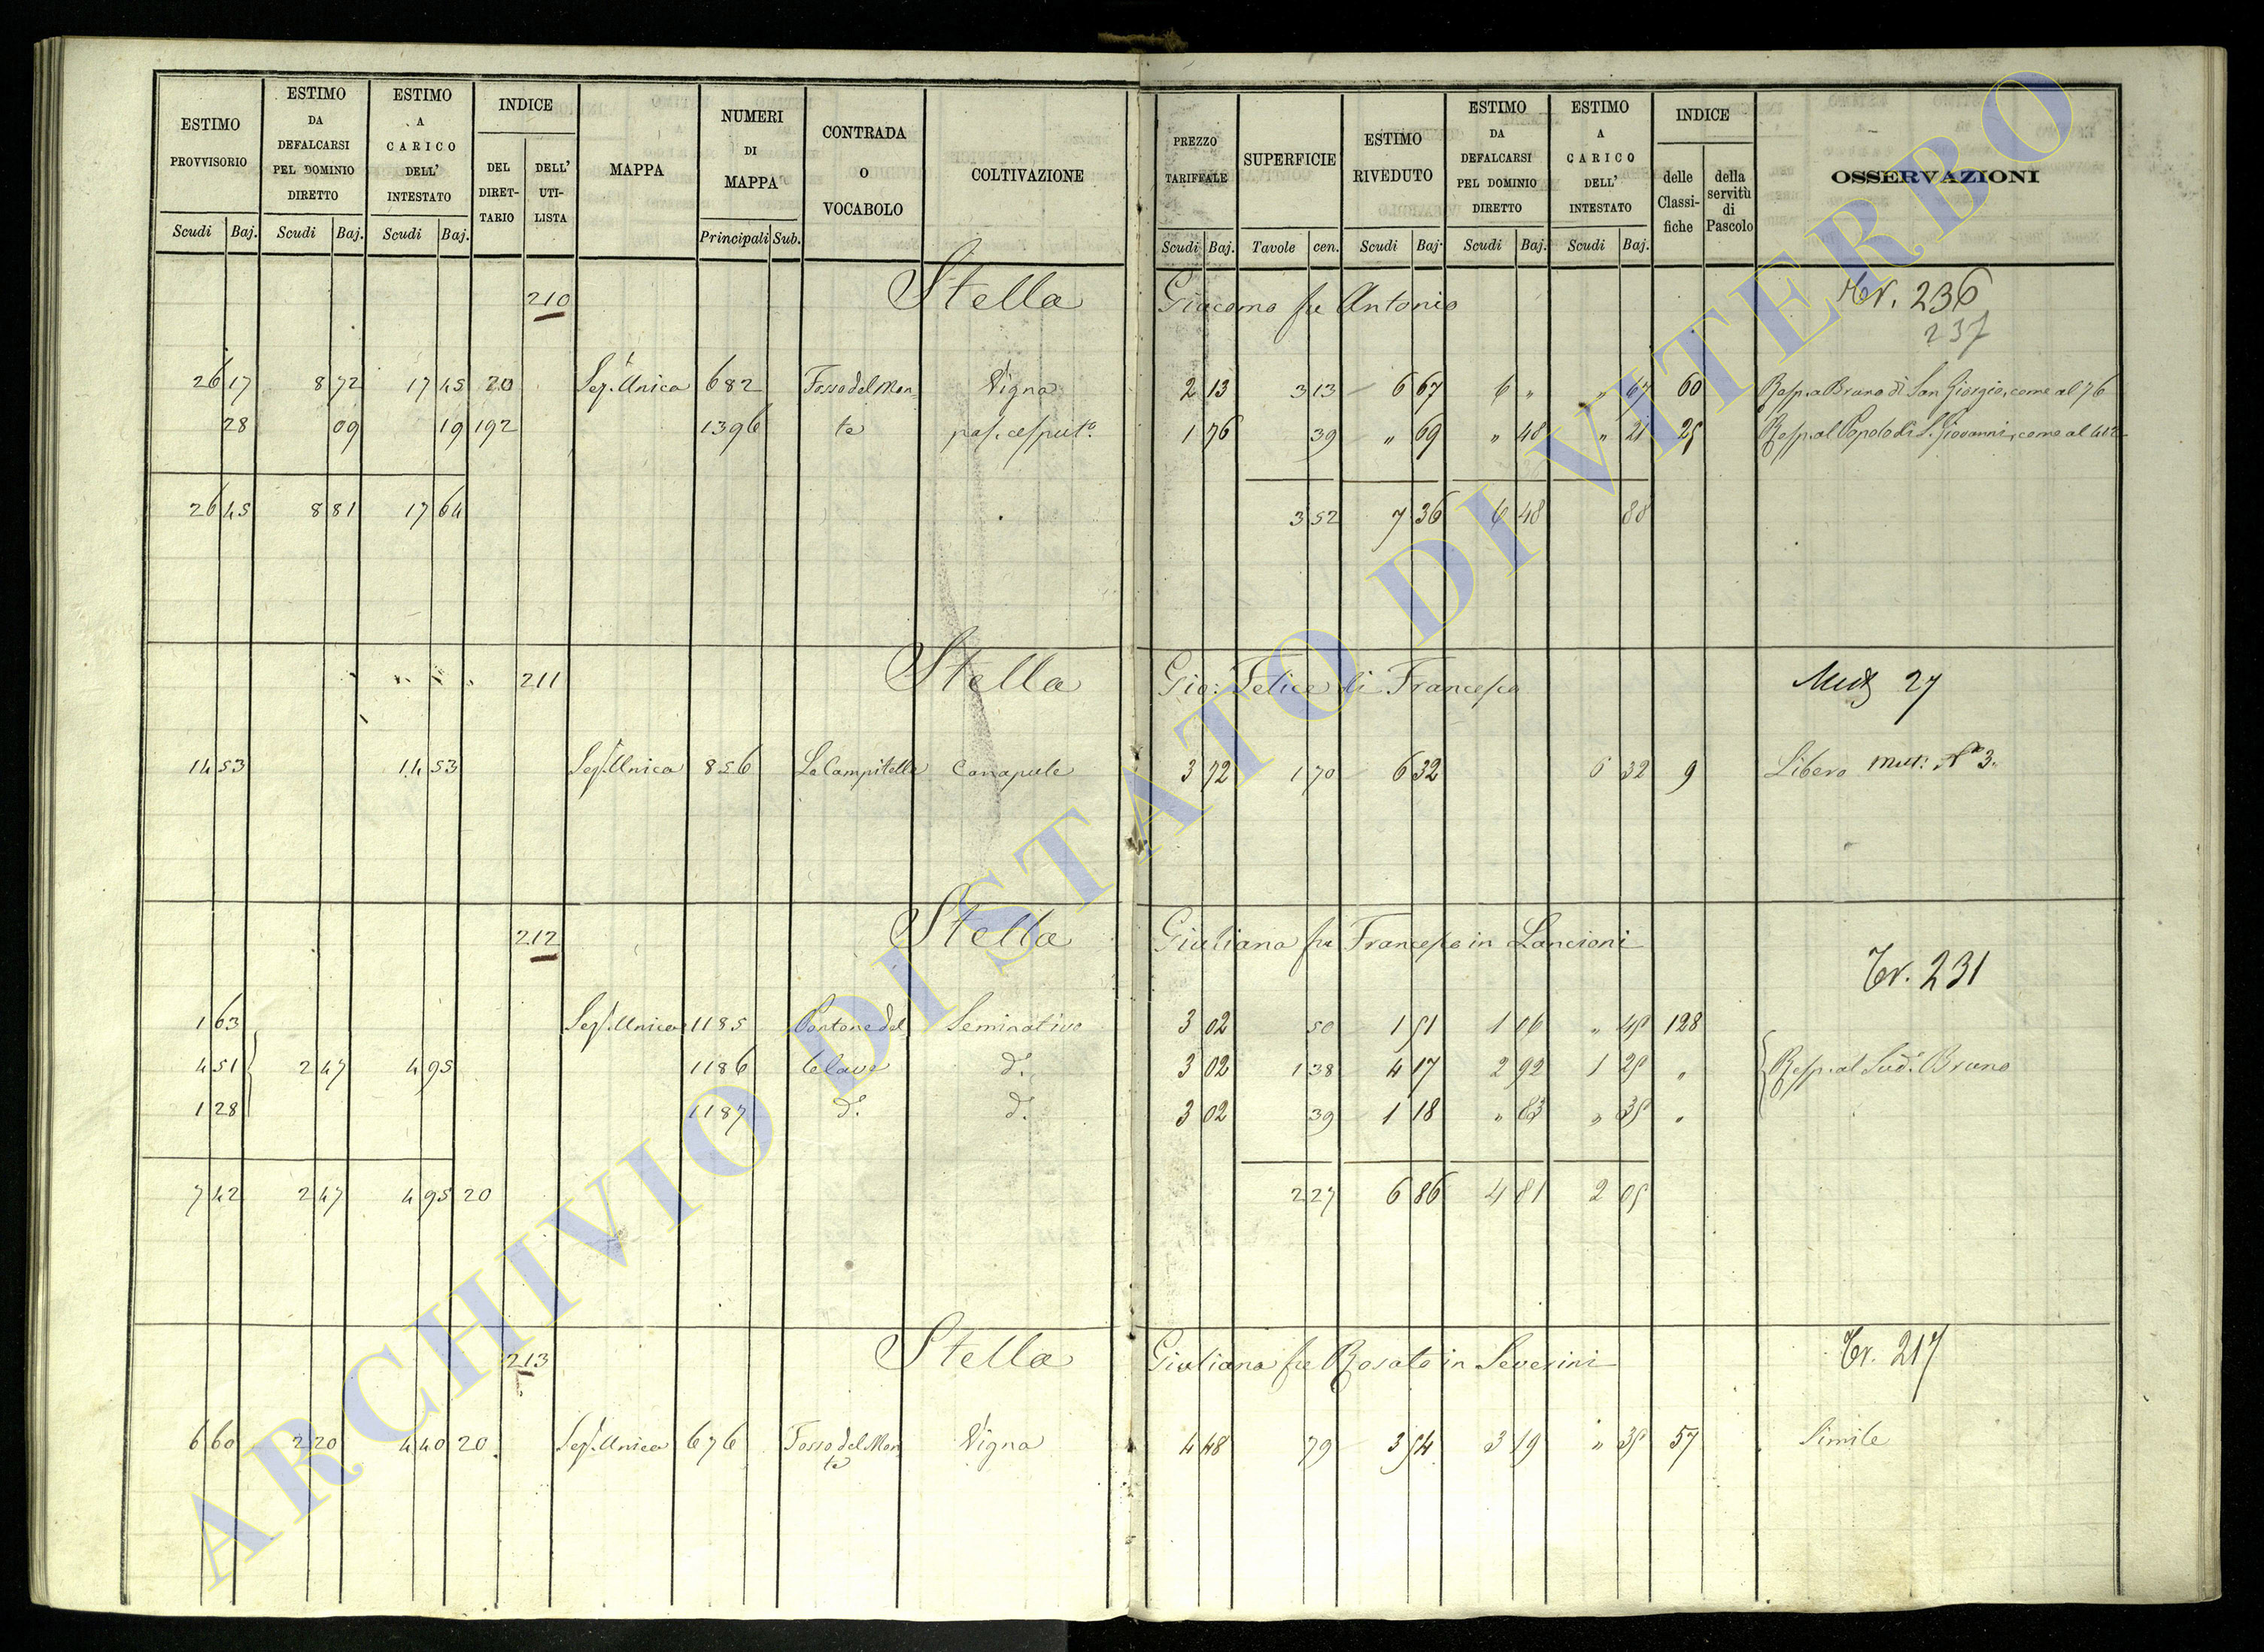 ESTIMO PROVVISORIO
ESTIMO DA DEFALCARSI PEL DOMINIO DIRETTO
ESTIMO A CARICO DELL' INTESTATO
INDICE
DEL DIRET- TARIO
DELL' UTI- LISTA
MAPPA
NUMERI DI MAPPA
CONTRADA O VOCABOLO
COLTIVAZIONE
PREZZO TARIFFALE
SUPERFICIE
ESTIMO RIVEDUTO
ESTIMO DA DEFALCARSI PEL DOMINIO DIRETTO
ESTIMO A CARICO DELL' INTESTATO
INDICE
delle Classi- fiche
della servitù di Pascolo
OSSERVAZIONI
Scudi Baj. Scudi Baj. Scudi Baj. Principali Sub. Scudi Baj. Tavole cen. Scudi Baj. Scudi Baj. Scudi Baj.
210 Stella Giacomo fu Antonio Tr. 236
237
26 17 8 72 17 45 20 Sez. Unica 682 Fosso del Mon Vigna 2 13 3 13 6 67 6 " " 67 60 Resp. a Bruno di San Giorgio, come al 76
28 09 19 192 1396 te pas. cesput.o 1 76 39 " 69 " 48 " 21 25 Resp. al Popolo di S. Giovanni, come al
26 45 8 81 17 64 3 52 7 36 6 48 88
211 Stella Gio: Felice di Francesco 27
14 53 14 53 Sez. Unica 856 Le Campitelle Canapule 3 72 1 70 6 32 6 32 9 Libero Mut: N° 3.
212 Stella Giuliana fu Francesco in Lancioni Tr. 231
1 63 Sez. Unica 1185 Pantane del Seminativo 3 02 50 1 51 1 06 " 45 128
4 51 2 47 4 95 1186 d.o 3 02 1 38 4 17 2 92 1 25 " Resp. al Sud.o Bruno
1 28 1187 d.o d.o 3 02 39 1 18 " 83 " 35 "
7 42 2 47 4 95 20 2 27 6 86 4 81 2 05
213 Stella Giuliana fu Rosato in Severini Tr. 217
6 60 2 20 4 40 20 Sez. Unica 676 Fosso del Mon te Vigna 4 48 79 3 54 3 19 " 35 57 Simile
ARCHIVIO DI STATO DI VITERBO